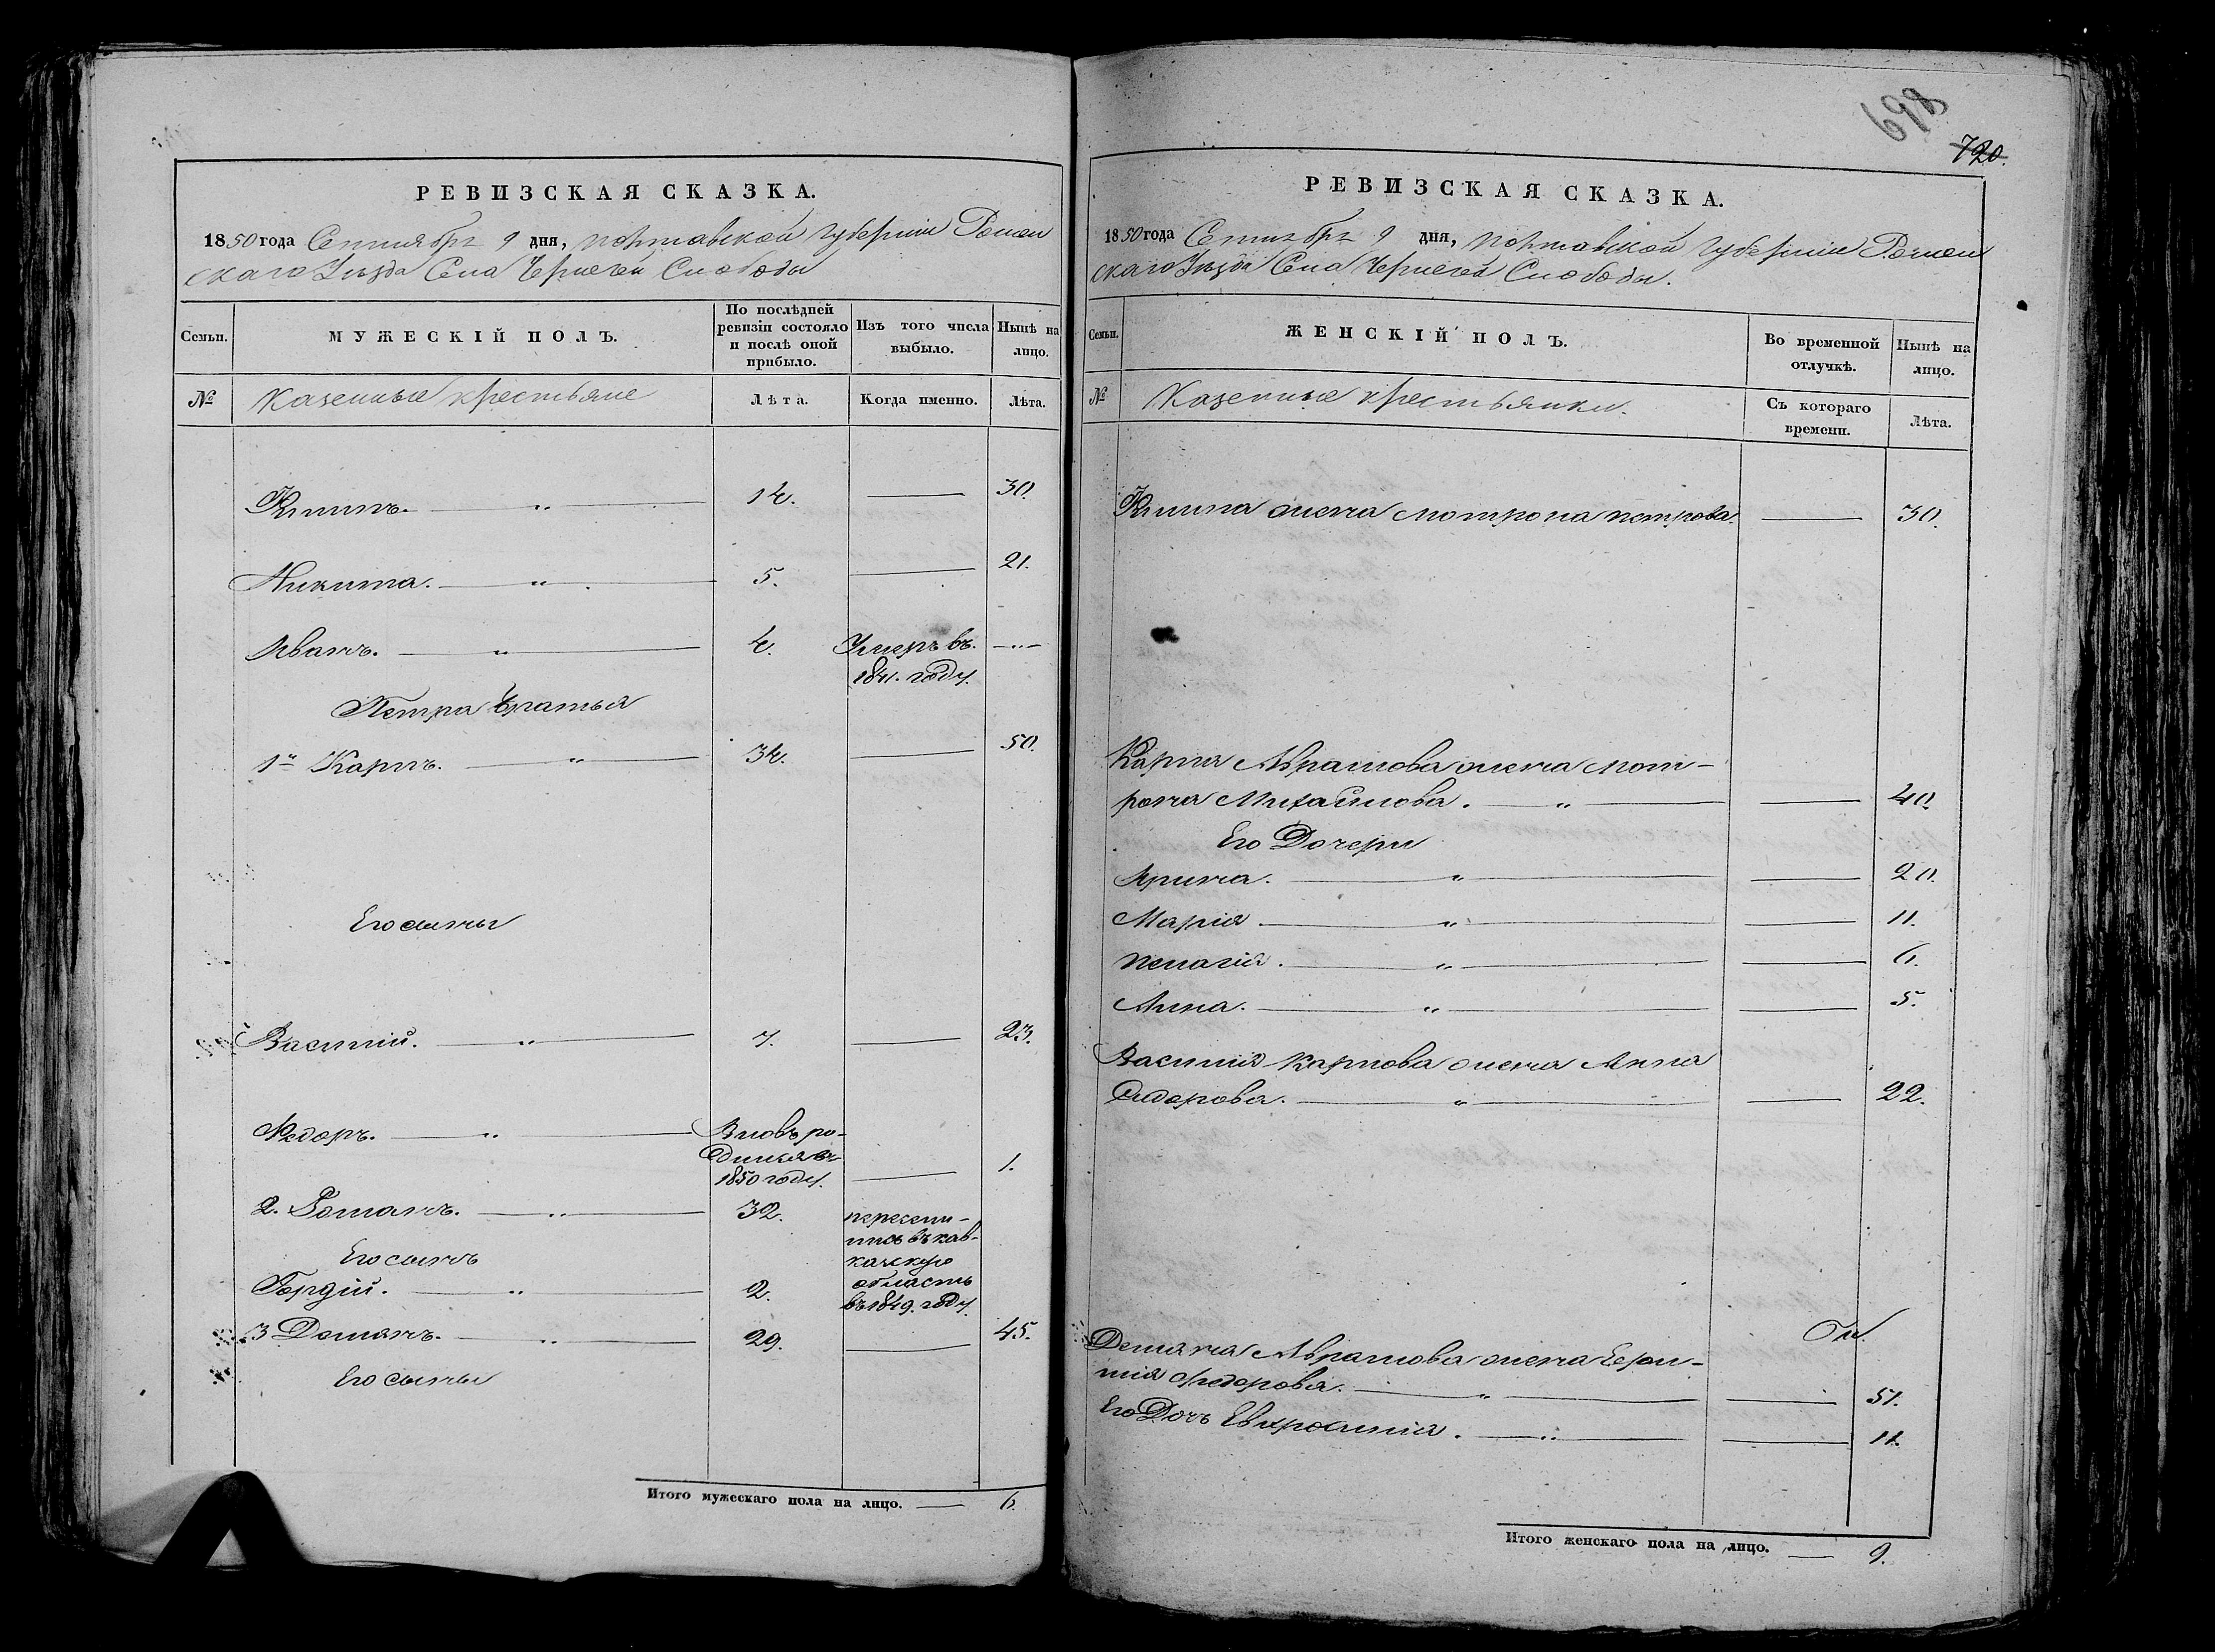 РЕВИЗСКАЯ СКАЗКА.
1850 года Сентября 9 дня, Полтавской губернiи Ромен
скаго Уѣзда Села Чернечей Слободы
Семьи.
МУЖЕСКIЙ ПОЛЪ.
По послѣдней ревизiи состояло и послѣ оной прибыло.
Изъ того числа выбыло.
Нынѣ на лицо.
№
Казенные крестьяне
Лѣта.
Когда именно.
Лѣта.
Климъ. — „ — 14. — 30.
Никита. — „ — 5. — 21.
Иванъ. — „ — 4. Умеръ въ — „ —
1841. году.
Петра братья
1й Карпъ. — „ — 34. — 50.
Его сыны
Василiй. — „ — 7. — 23.
Федоръ. — „ — Вновь ро-
дился въ
1850 году. — 1.
2. Романъ. — „ — 32. пересели-
лись въ Кав-
Его сынъ
казскую
Гордiй. — „ — 2. область
въ 1849. году.
3 Демянъ. — „ — 29. — 45.
Его сыны
Итого мужескаго пола на лицо. — 6.
698
720.
РЕВИЗСКАЯ СКАЗКА.
1850 года Сентября 9 дня, Полтавской губернiи Ромен
скаго Уѣзда Села Чернечей Слободы.
Семьи.
ЖЕНСКIЙ ПОЛЪ.
Во временной отлучкѣ.
Нынѣ на лицо.
№
Казенные крестьянки.
Съ котораго времени.
Лѣта.
Клима жена Мотрона Петрова. — 30.
Карпа Абрамова жена Мот-
рона Михайлова. — „ — 40.
Его Дочери
Ирина. — „ — 20.
Марiя. — „ — 11.
Пелагiя. — „ — 6.
Анна. — „ — 5.
Василiя Карпова жена Анна
Сидорова. — „ — 22.
Демяна Абрамова жена
Федорова. — „ — 51.
Его Дочь Евфросинiя. — „ — 11.
Итого женскаго пола на лицо. — 9.